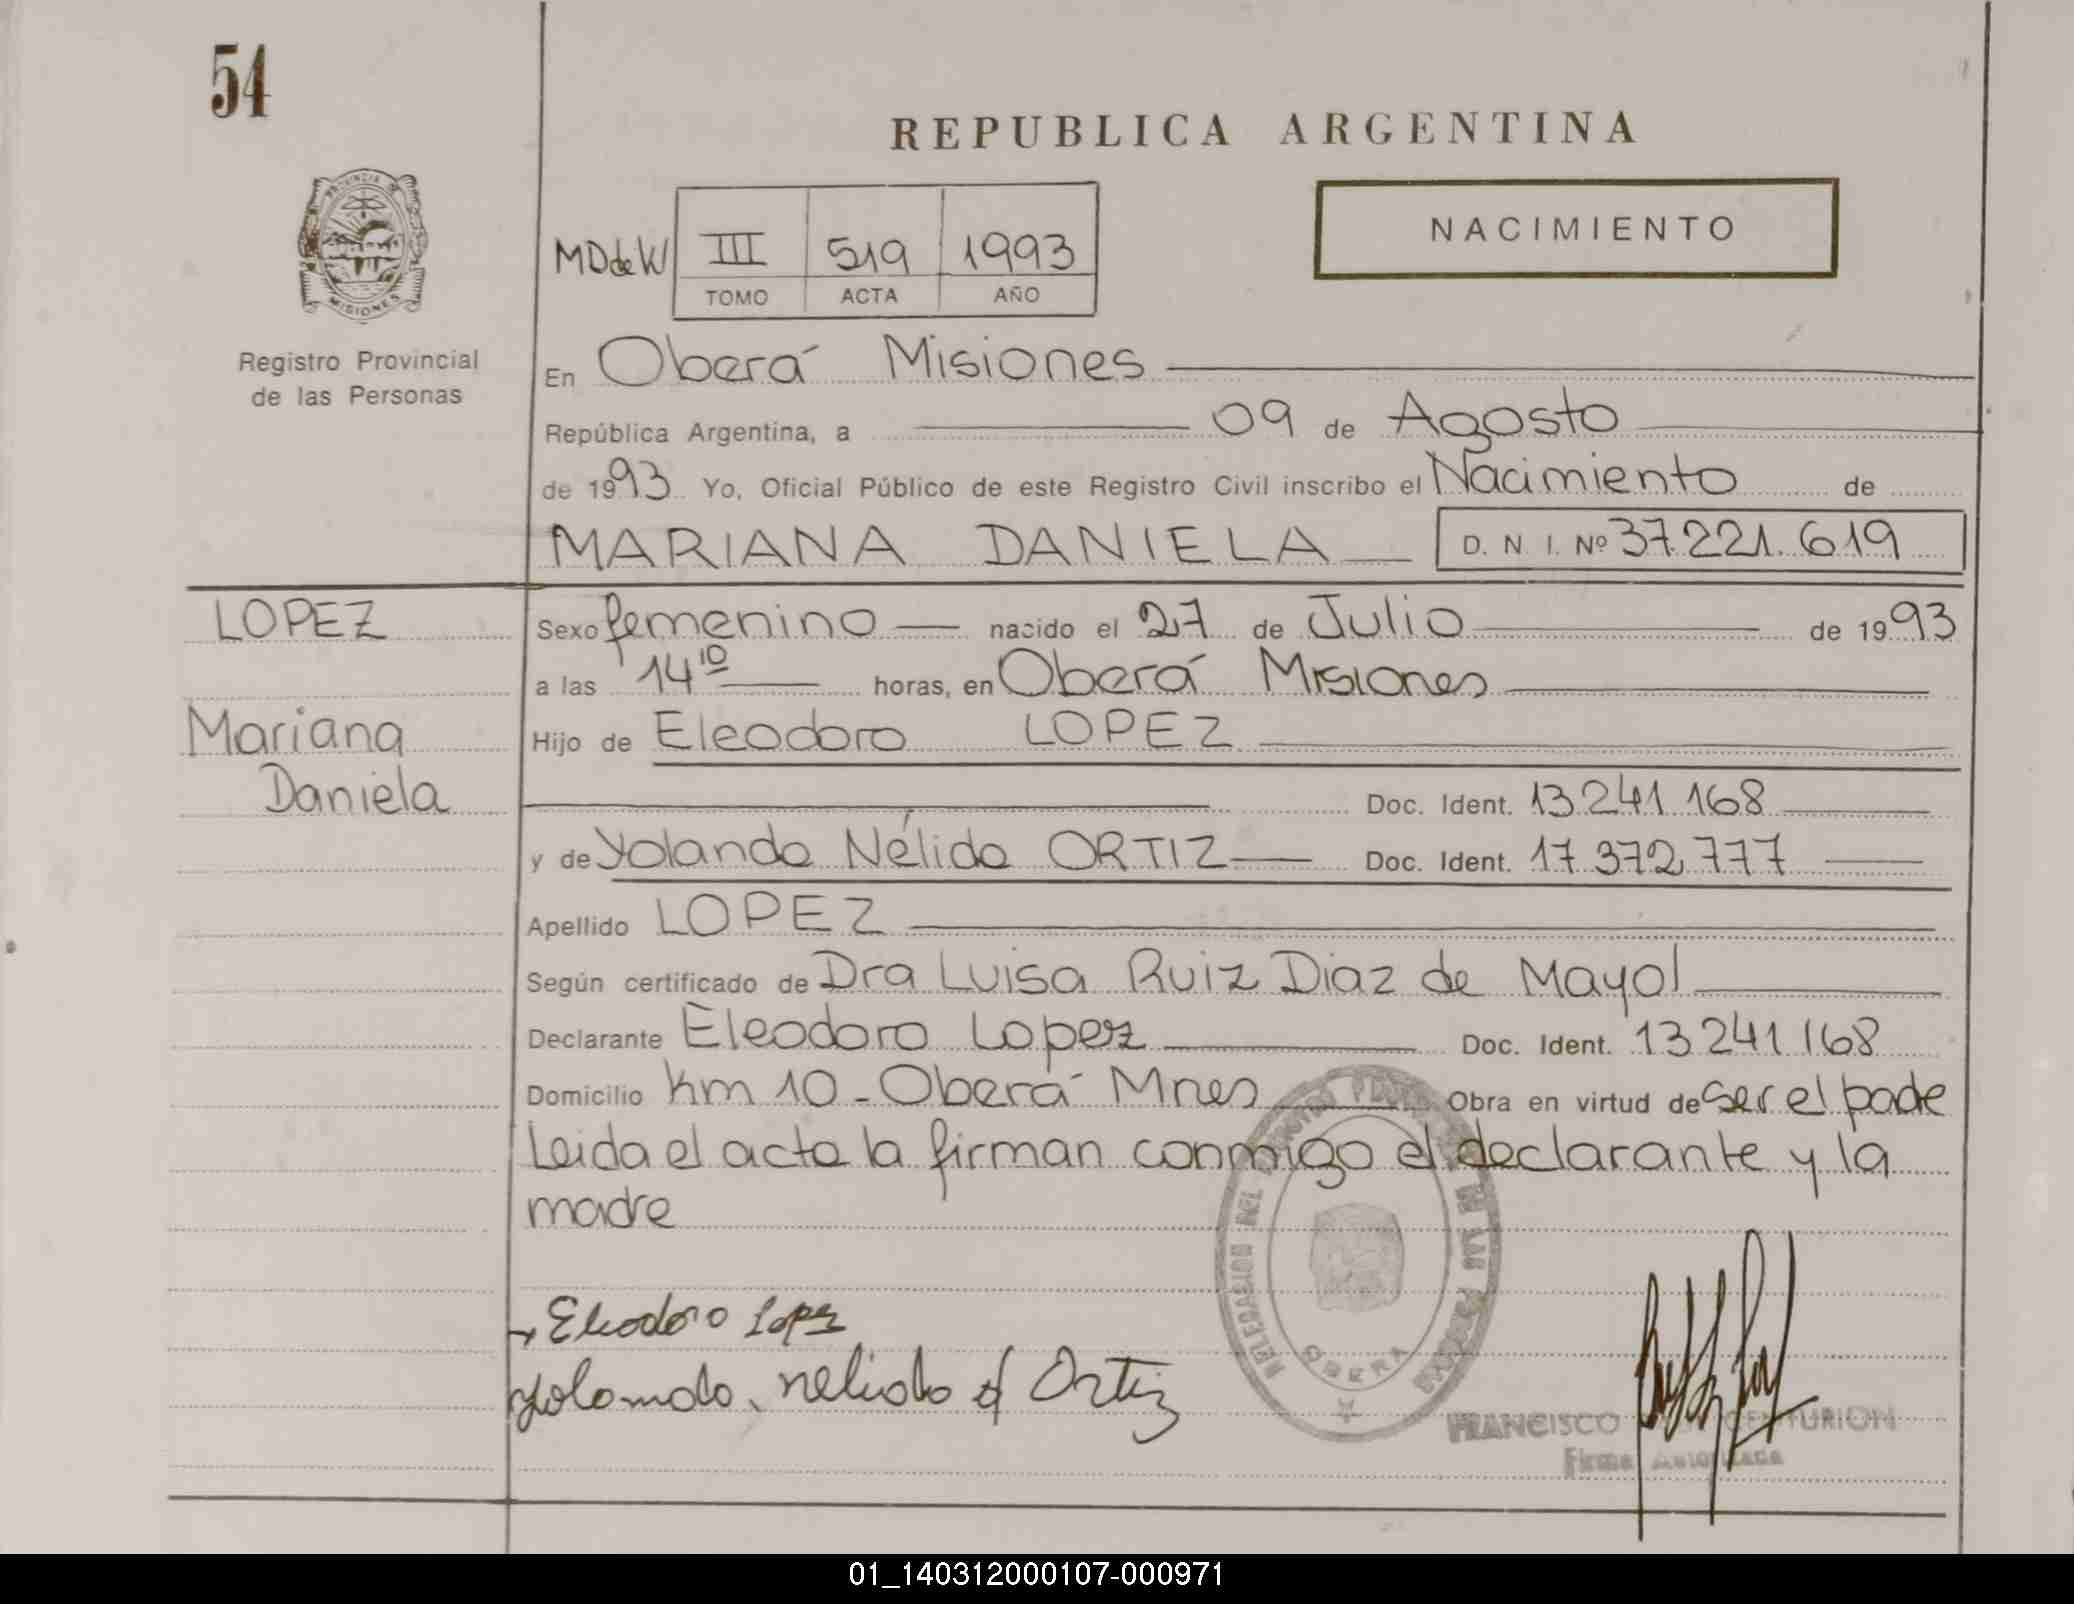 54
REPUBLICA ARGENTINA
PROVINCIA DE
MISIONES
NACIMIENTO
MD de W III 519 1993
TOMO ACTA AÑO
Registro Provincial
de las Personas
En Oberá Misiones
República Argentina, a 09 de Agosto
de 1993 Yo, Oficial Público de este Registro Civil inscribo el Nacimiento de
MARIANA DANIELA D. N. I. Nº 37.221.619
LOPEZ
Mariana
Daniela
Sexo femenino nacido el 27 de Julio de 1993
a las 14 10 horas, en Oberá Misiones
Hijo de Eleodoro LOPEZ
Doc. Ident. 13.241.168
y de Yolanda Nélida ORTIZ Doc. Ident. 17.372.777
Apellido LOPEZ
Según certificado de Dra Luisa Ruiz Diaz de Mayol
Declarante Eleodoro Lopez Doc. Ident. 13 241 168
Domicilio Km 10 - Oberá Mnes Obra en virtud de ser el padre
Leida el acta la firman conmigo el declarante y la
madre
DELEGACION DEL REGISTRO DE LAS PERSONAS
OBERA
Eleodoro Lopez
Yolanda. nelida Ortiz
FRANCISCO CENTURION
Firma Autorizada
01_140312000107-000971